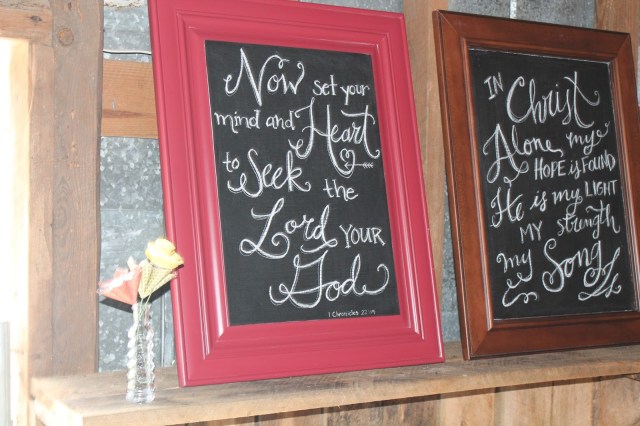 Now set your
mind and Heart
to Seek the
Lord YOUR
God
1 Chronicles 22:19
IN Christ
Alone, my
HOPE is FOUND
He is my LIGHT
MY strength
my Song